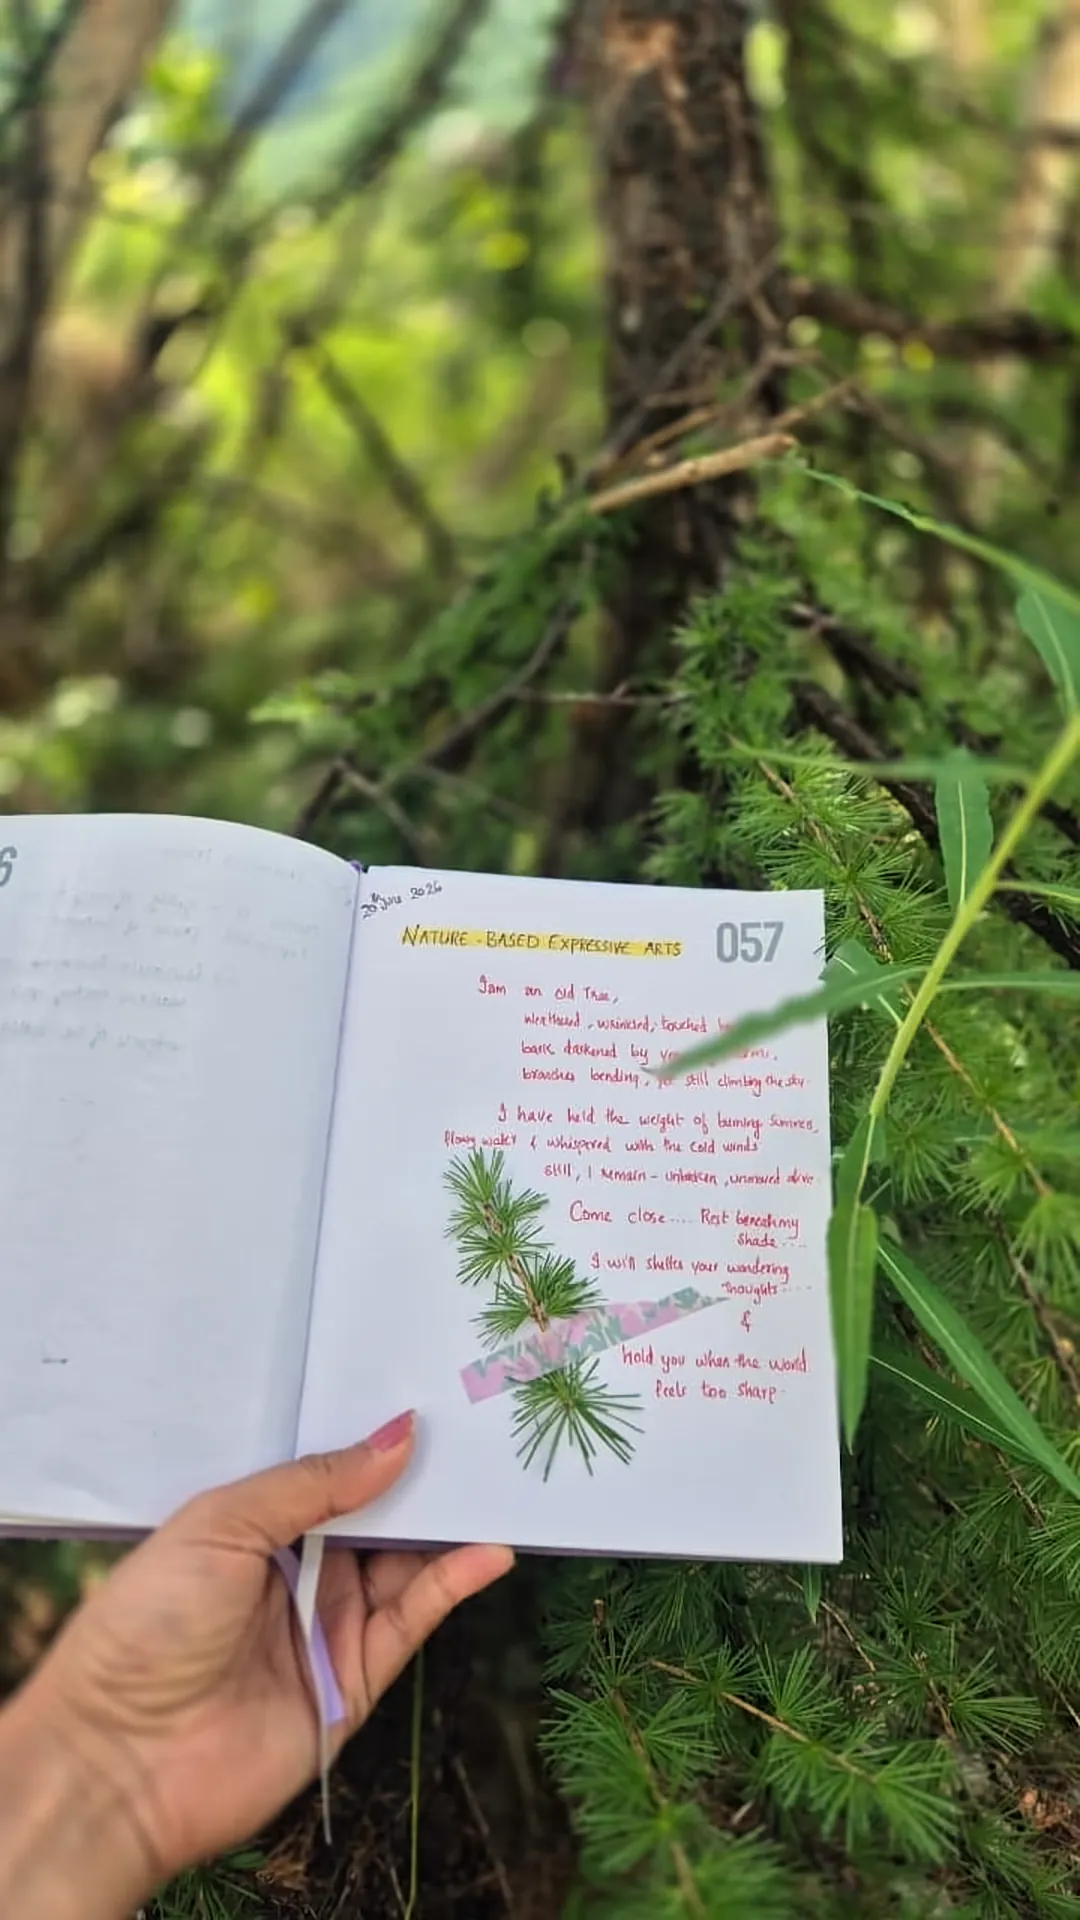 6
20th June 2026
NATURE-BASED EXPRESSIVE ARTS
057
I am an old Tree,
weathered, wrinkled, touched
bark darkened by
branches bending, still climbing the sky.
I have held the weight of burning Summers,
water & whispered with the cold winds
still, I remain - unbroken, unmoved alive.
Come close.... Rest beneath my
Shade....
I will shelter your wandering
Thoughts....
&
hold you when the world
feels too sharp.